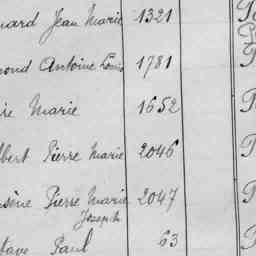 nard Jean Marie 1321 P
mond Antoine Louis 1781 P
ire Marie 1652 P
lbert Pierre Marie 2046 P
sène Pierre Marie 2047 P
Joseph
tave Paul 63 P